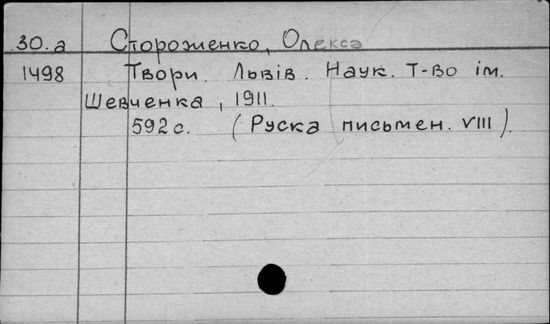 30.а Стороженко, Олекса
1498 Твори. Львів. Наук. Т-во ім.
Шевченка, 1911.
592 с. (Руска письмен. VIII).